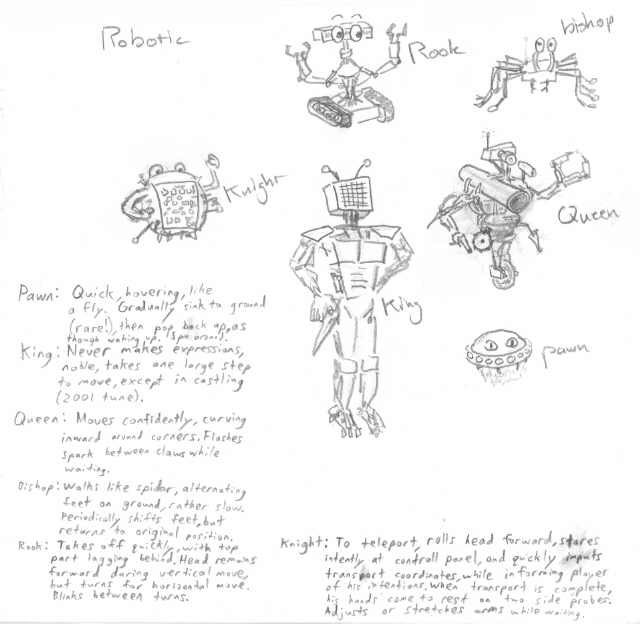 Robotic
Rook
bishop
Knight
Queen
King
pawn
Pawn: Quick, hovering, like
a fly. Gradually sink to ground
(rare!), then pop back up, as
though waking up. (Spin around).
King: Never makes expressions,
noble, takes one large step
to move, except in castling
(2001 tune).
Queen: Moves confidently, curving
inward around corners. Flashes
spark between claws while
waiting.
Bishop: Walks like spider, alternating
feet on ground, rather slow.
Periodically shifts feet, but
returns to original position.
Rook: Takes off quickly, with top
part lagging behind. Head remains
forward during vertical move,
but turns for horizontal move.
Blinks between turns.
Knight: To teleport, rolls head forward, stares
intently at controll panel, and quckly inputs
transport coordinates, while informing player
of his intentions. When transport is complete,
his hands come to rest on two side probes.
Adjusts or stretches arms while waiting.